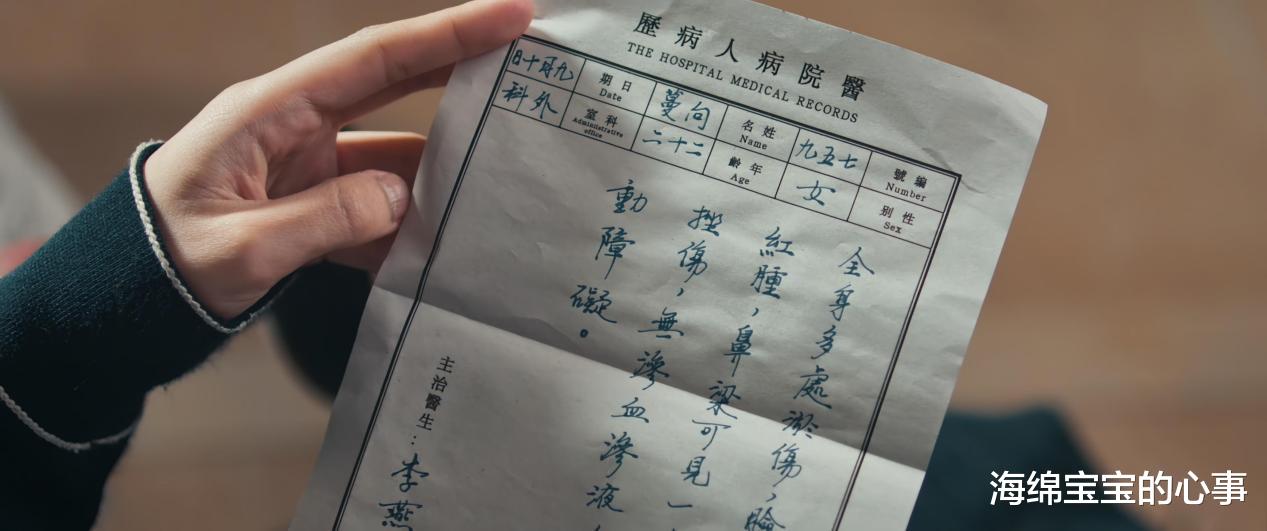 醫院病人病歷
THE HOSPITAL MEDICAL RECORDS
編號 七五九 姓名 向蔓 日期 九月十日
Number Name Date
性別 女 年齡 二十二 科室 外科
Sex Age Administrative office
全身多處淤傷，臉
紅腫，鼻梁可見一
挫傷，無滲血滲液
動障礙。
主治醫生：李燕
海绵宝宝的心事